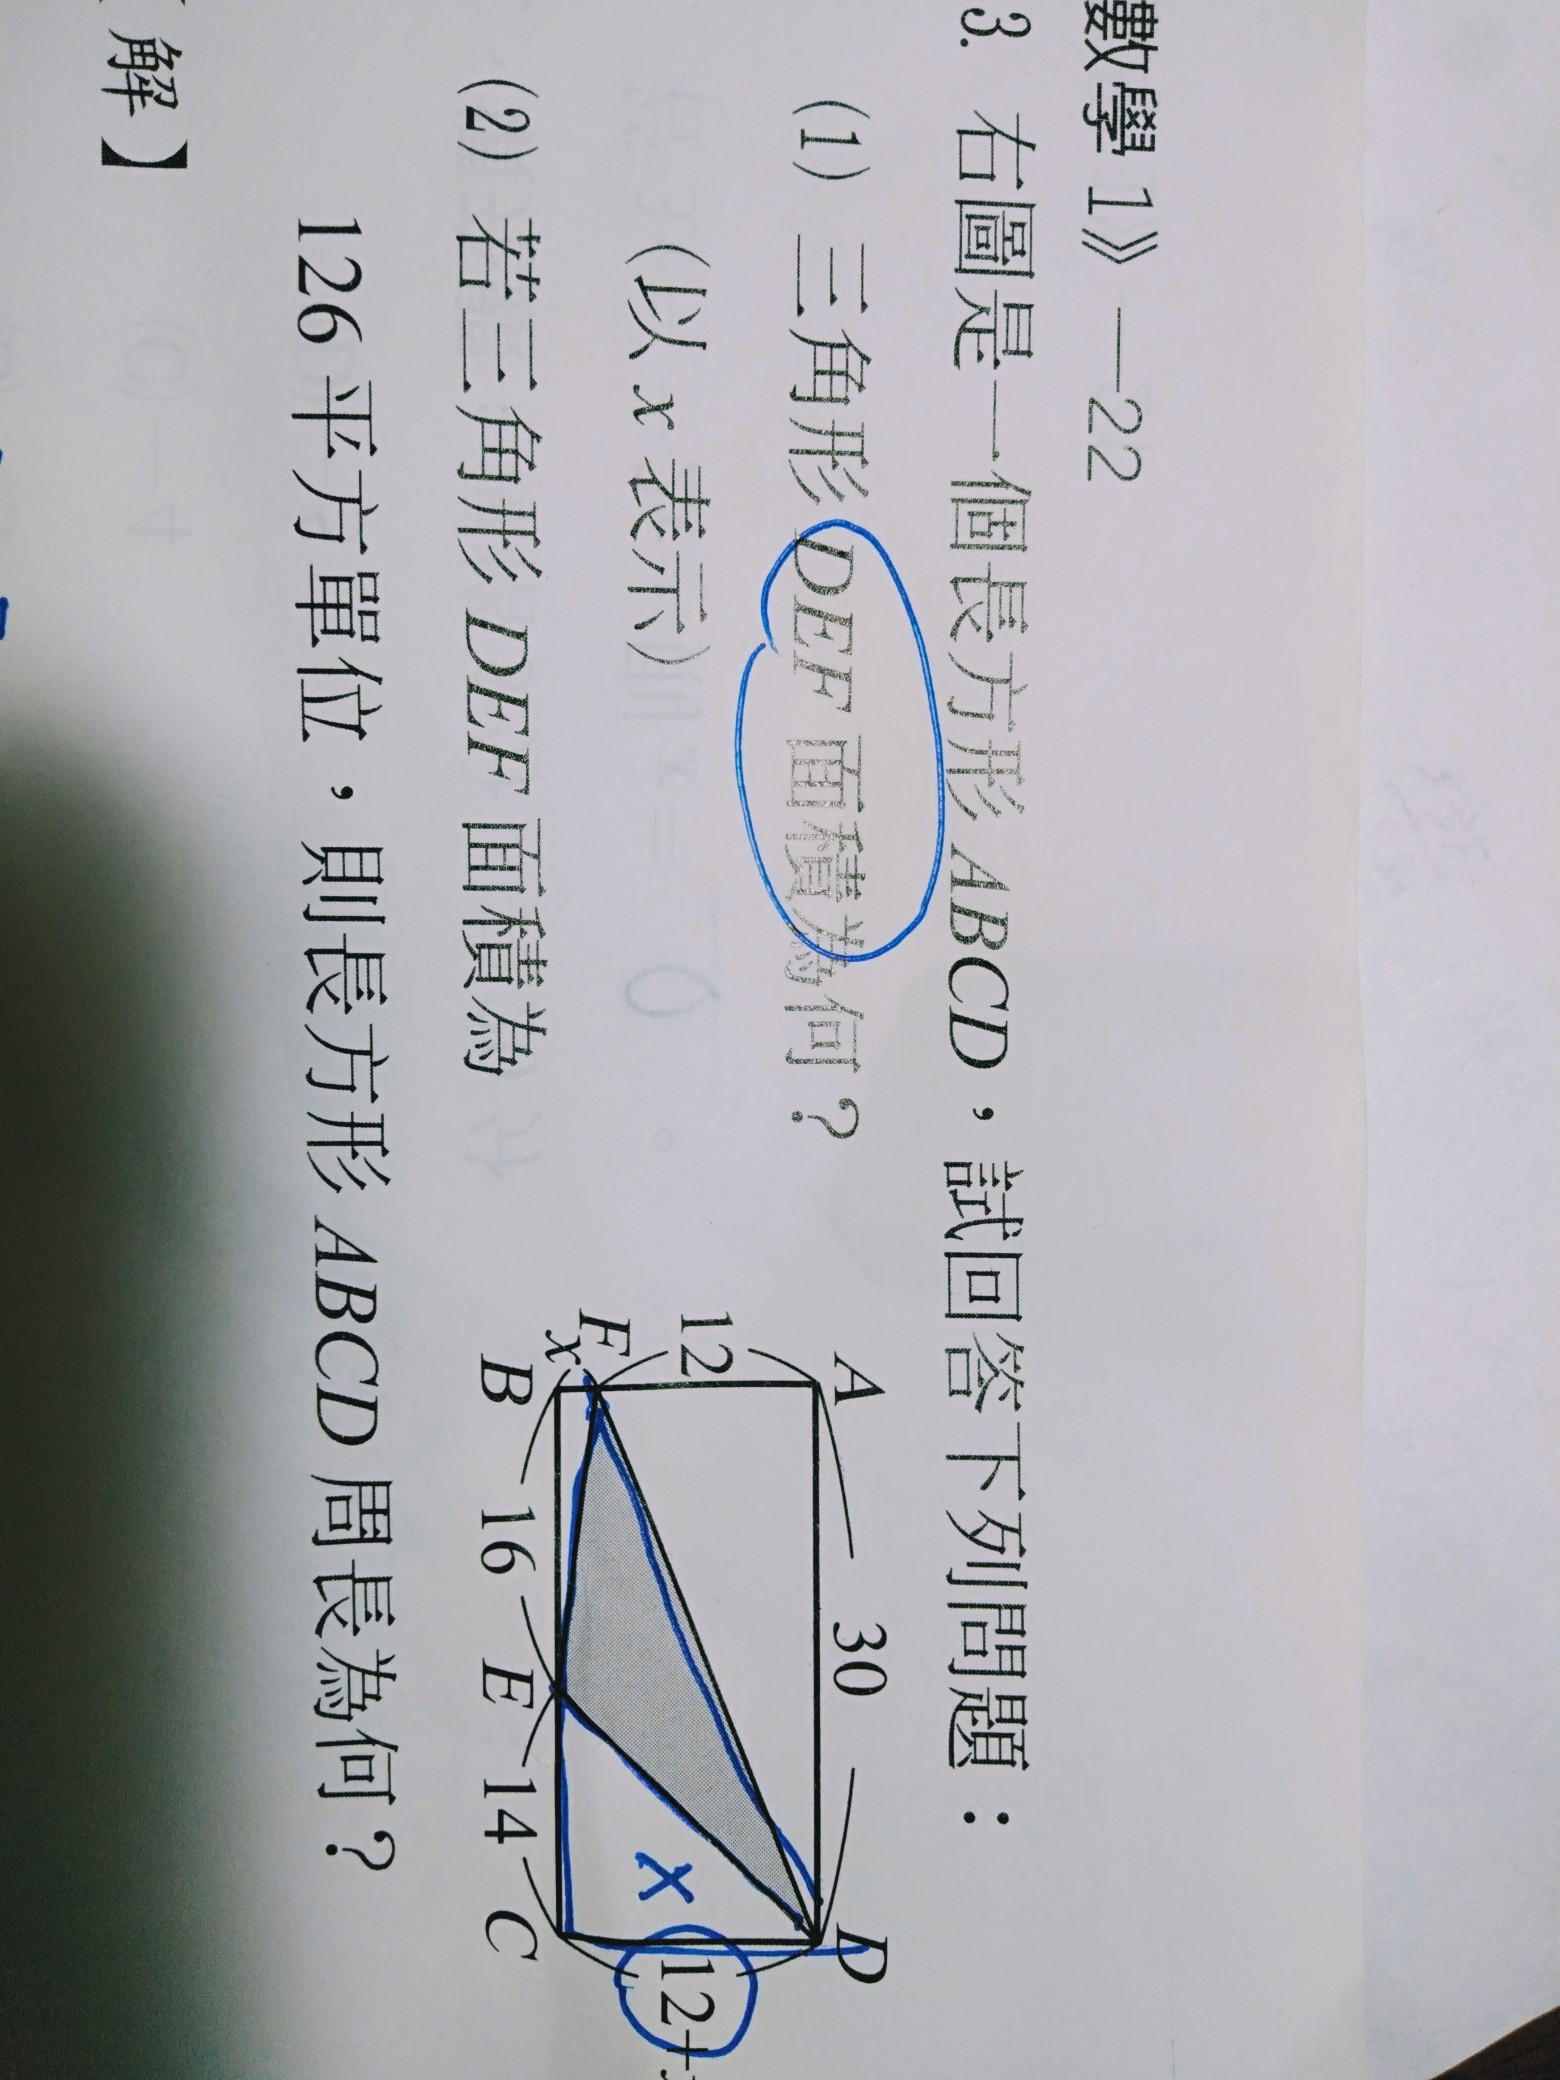 數學 1》 —22
3. 右圖是一個長方形 ABCD，試回答下列問題：
(1) 三角形 DEF 面積為何？
(以 x 表示)
(2) 若三角形 DEF 面積為
126 平方單位，則長方形 ABCD 周長為何？
解】
A 30 D
12
F
x
12+
x
B 16 E 14 C